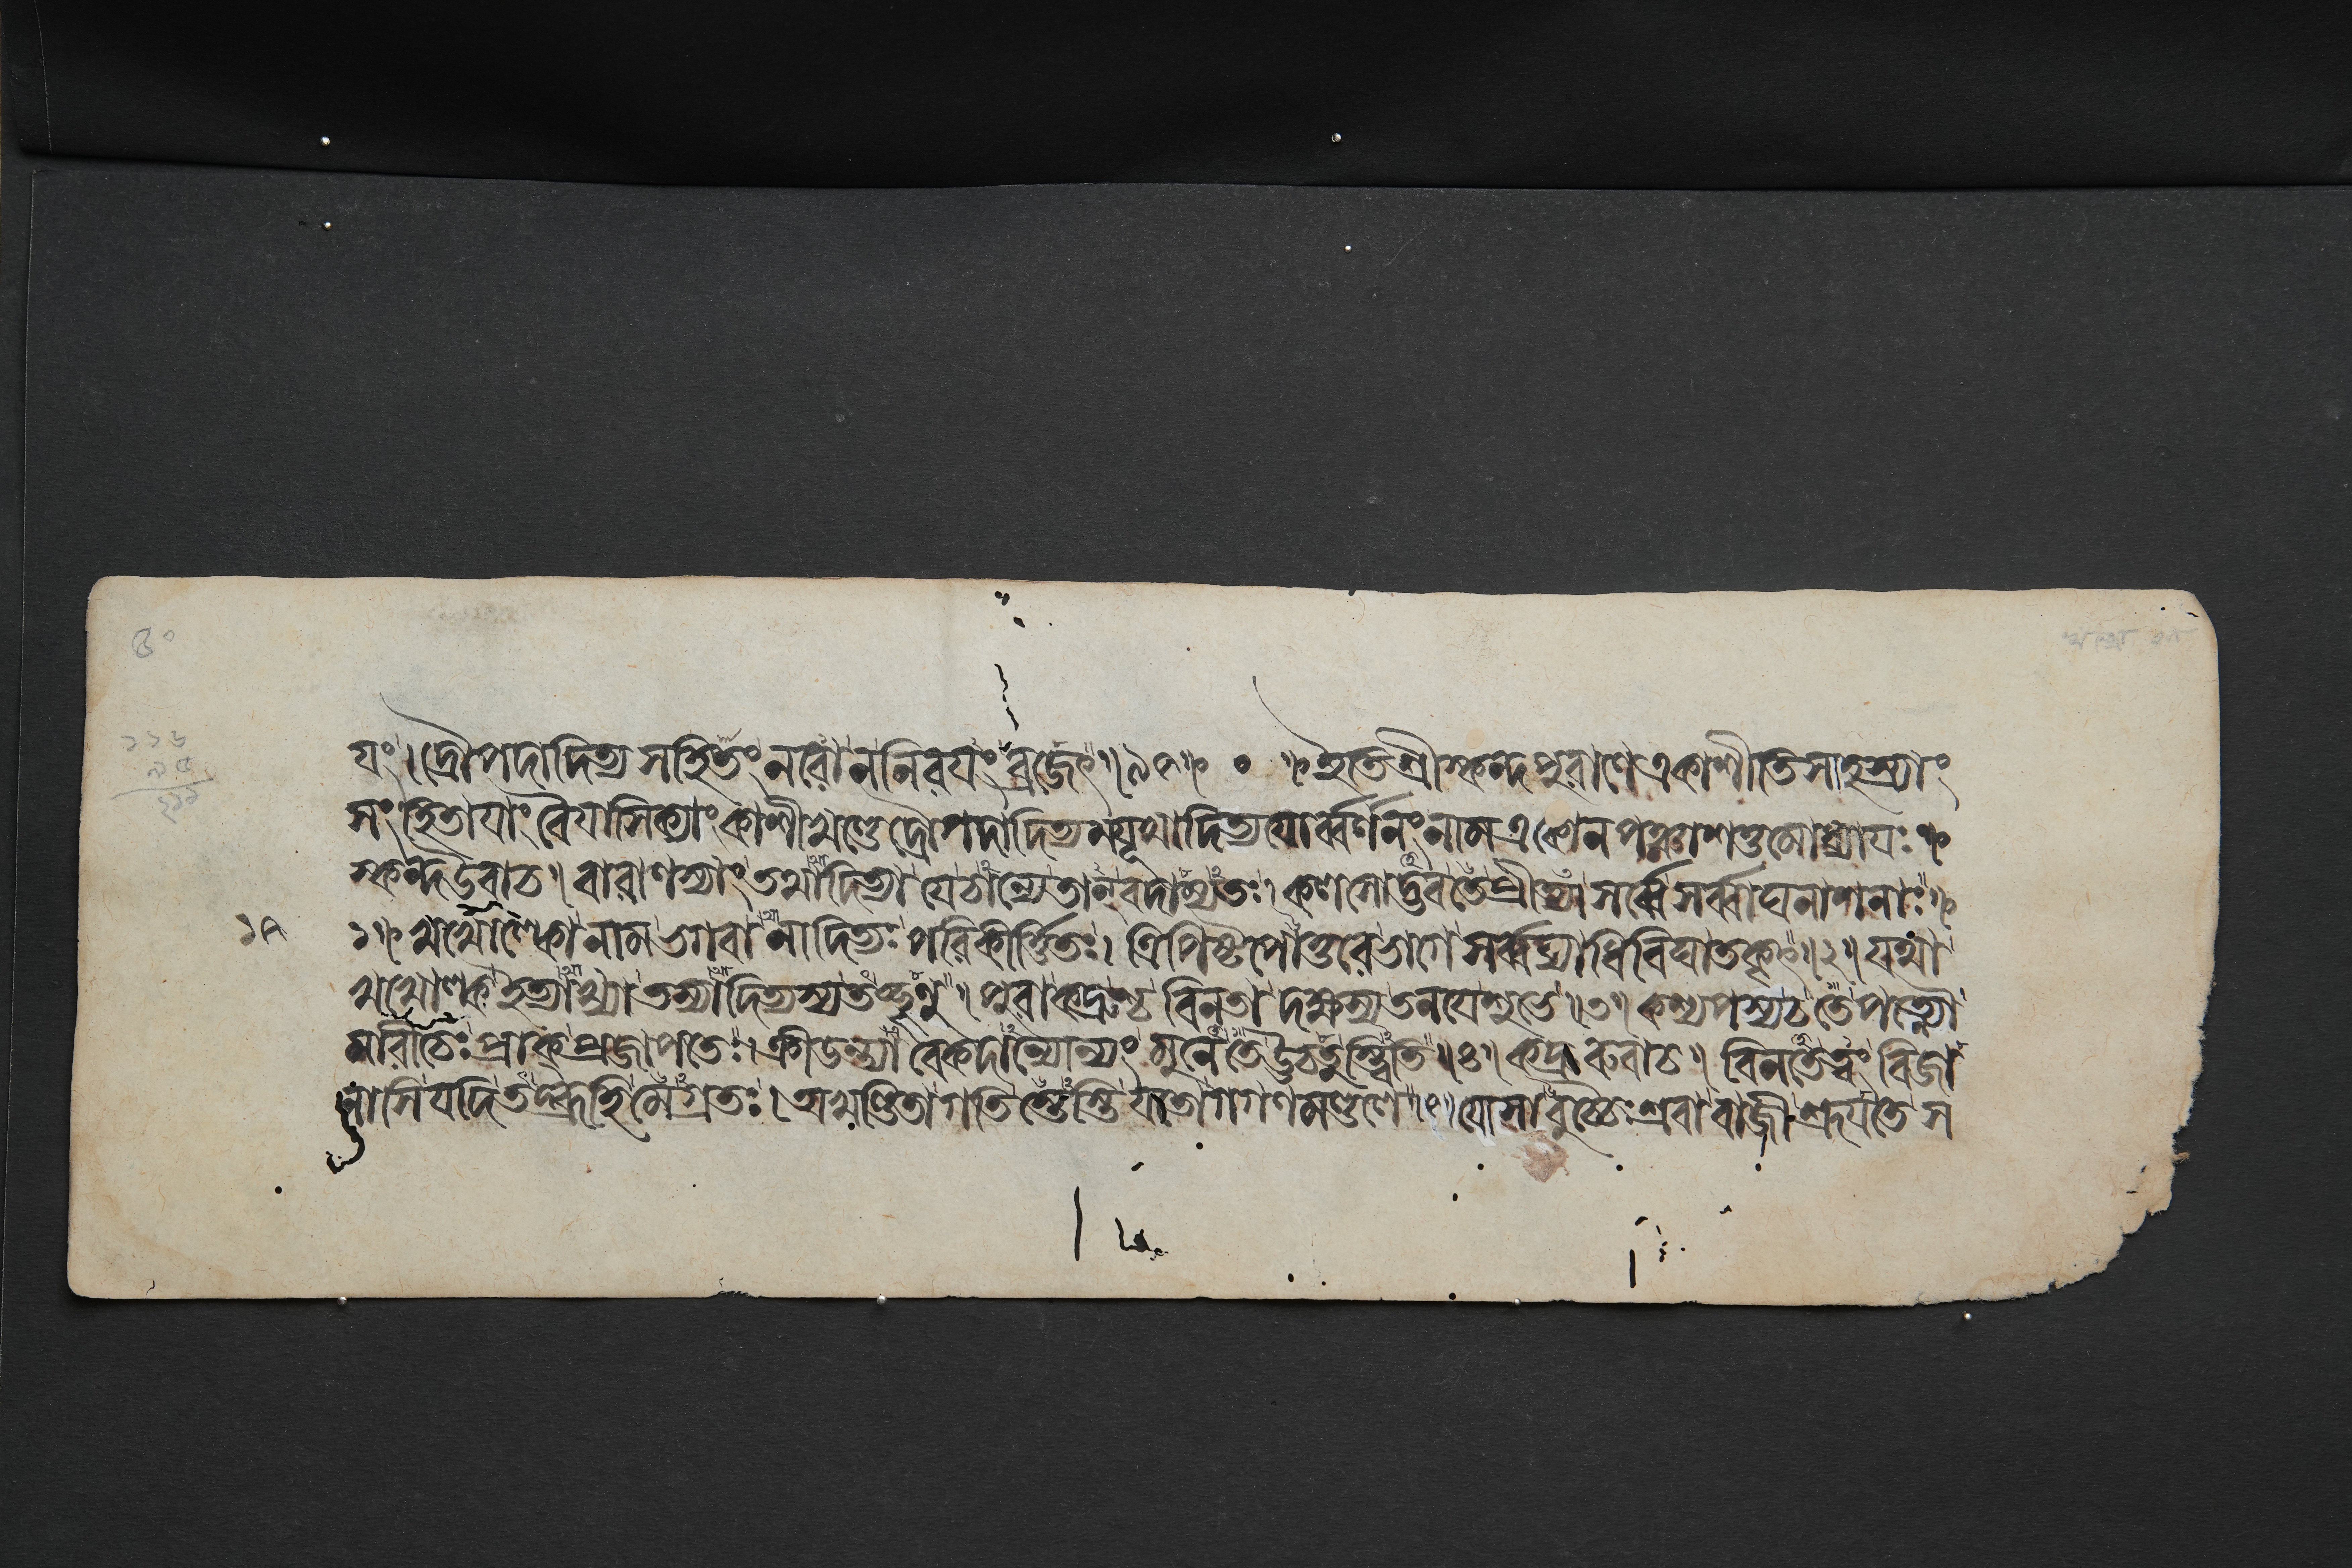 ৫০
১১৬
৯৫
২১১
যং। দ্রৌপদাদিত্য সহিতং নরো ন নিরয়ং ব্রজেৎ॥৯৫॥ ০ ॥ ইতি শ্রীস্কন্দপুরাণে একাশীতিসাহস্র্যাং
সংহিতায়াং বৈয়াসিক্যাং কাশীখণ্ডে দ্রৌপদাদিত্যময়ূখাদিত্যয়োর্ব্বর্ণনং নাম একোনপঞ্চাশত্তমোধ্যায়ঃ॥
স্কন্দ উবাচ॥ বারাণস্যাং তথাদিত্যা যে চান্যে তান্ বদাম্যতঃ। কলসোদ্ভব তে প্রীত্যা সর্ব্বে সর্ব্বাঘনাশনাঃ॥
১৭ ১॥ খখোল্কো নাম ভগবানাদিত্যঃ পরিকীর্ত্তিতঃ। ত্রিপিষ্টপোত্তরে ভাগে সর্ব্বব্যাধিবিঘাতকৃৎ॥২॥ যথা
খখোল্ক ইত্যাখ্যা তস্যাদিত্যস্য তচ্ছৃণু॥ পুরা কদ্রূশ্চ বিনতা দক্ষস্য তনয়ে শুভে॥৩॥ কশ্যপস্য চ তে পত্ন্যৌ
মারীচেঃ প্রাক্ প্রজাপতেঃ। ক্রীডন্ত্যাবেকদান্যোন্যং মুনে তে ঊচতুস্ত্বিতি॥৪॥ কদ্রূরুবাচ॥ বিনতে ত্বং বিজা
নাসি যদি তদ্ব্রূহি মেগ্রতঃ। অখণ্ডিতা গতিস্তেস্তি যতো গগণমণ্ডলে॥৫॥ যোসাবুচ্চৈঃশ্রবা বাজী শ্রূয়তে স